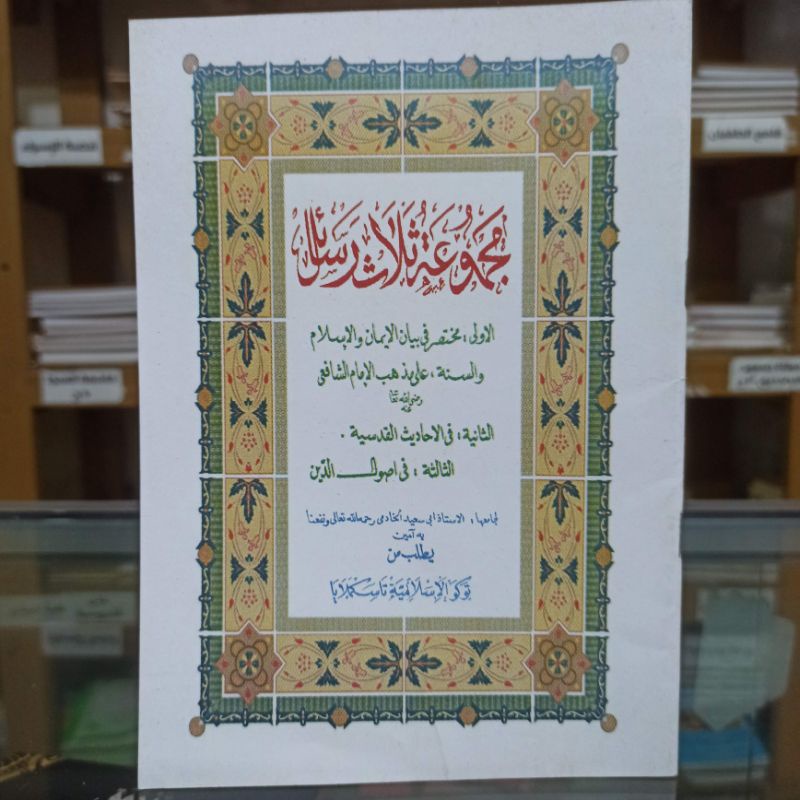 مجموعة ثلاث رسائل
الاولى : مختصر فى بيان الإيمان والإسلام
والسنة ، على مذهب الإمام الشافعى
رضى الله تعالى عنه
الثانية : فى الاحاديث القدسية .
الثالثة : فى اصول الدّين
لجامعها : الاستاذ ابى سعيد الخادمى رحمه الله تعالى ونفعنا
به آمين
يطلب من
توكو الإسلامية تاسكملايا